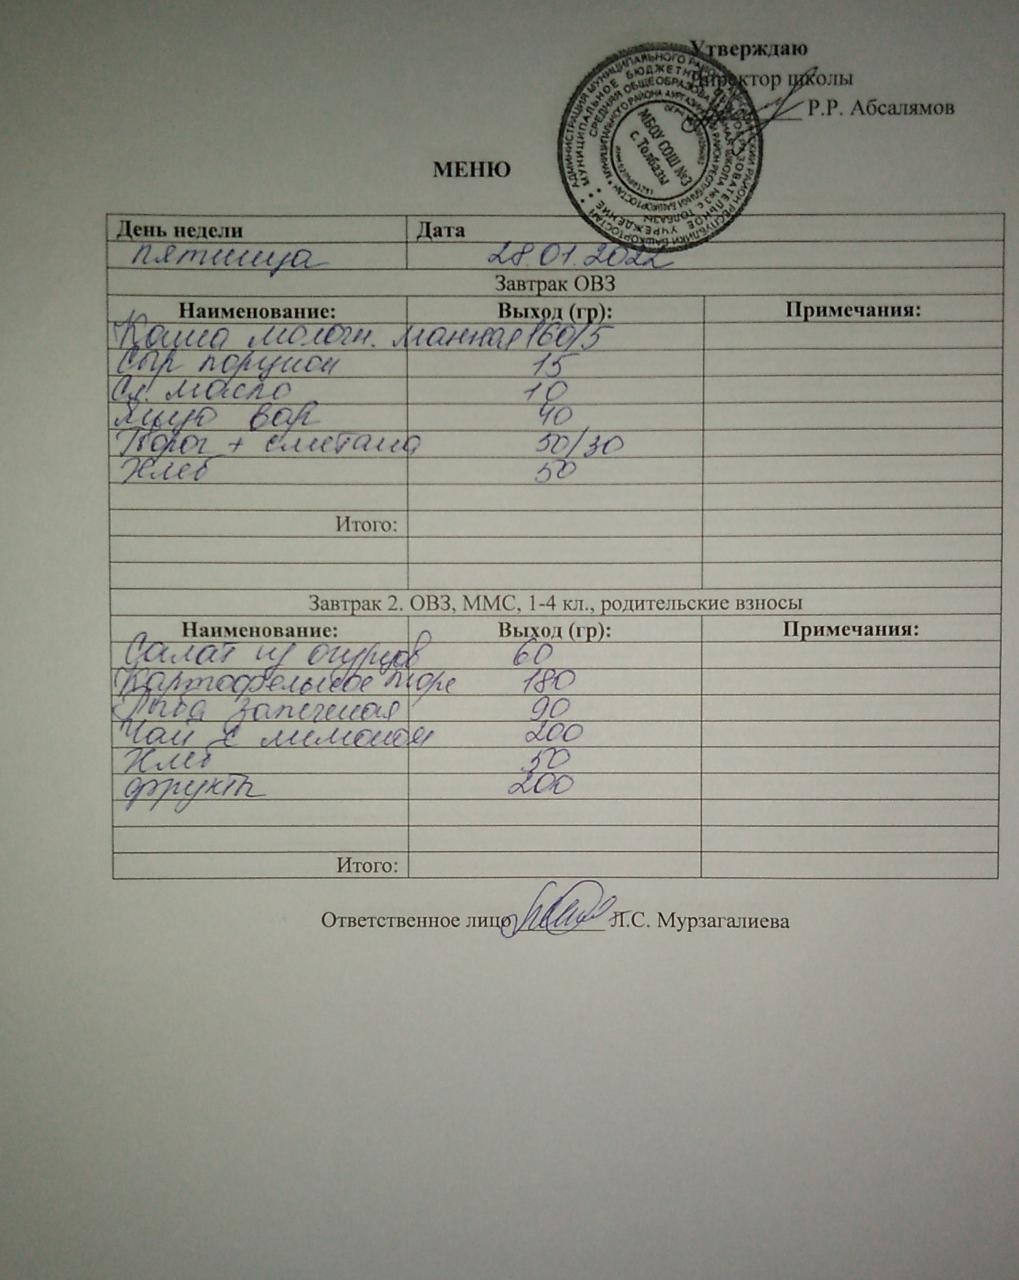 Утверждаю
Директор школы
Р.Р. Абсалямов
МБОУ СОШ №3
с. Толбазы
МЕНЮ
День недели Дата
пятница 28.01.2022
Завтрак ОВЗ
Наименование: Выход (гр): Примечания:
Каша молочн. манная 160/5
Сыр порцион 15
Сл. масло 10
Яйцо вар 40
Творог + сметана 50/30
Хлеб 50
Итого:
Завтрак 2. ОВЗ, ММС, 1-4 кл., родительские взносы
Наименование: Выход (гр): Примечания:
Салат из огурцов 60
Картофельное пюре 180
Рыба запеченая 90
Чай с лимоном 200
Хлеб 50
фрукты 200
Итого:
Ответственное лицо Л.С. Мурзагалиева